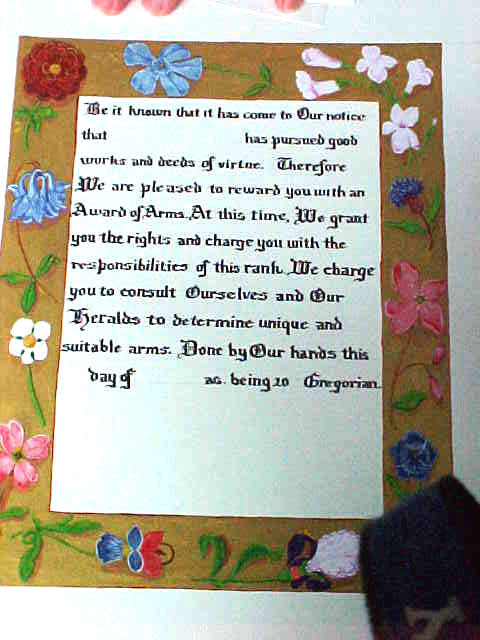 Be it known that it has come to Our notice
that has pursued good
works and deeds of virtue. Therefore
We are pleased to reward you with an
Award of Arms. At this time, We grant
you the rights and charge you with the
responsibilities of this rank. We charge
you to consult Ourselves and Our
Heralds to determine unique and
suitable arms. Done by Our hands this
day of as. being 20 Gregorian.